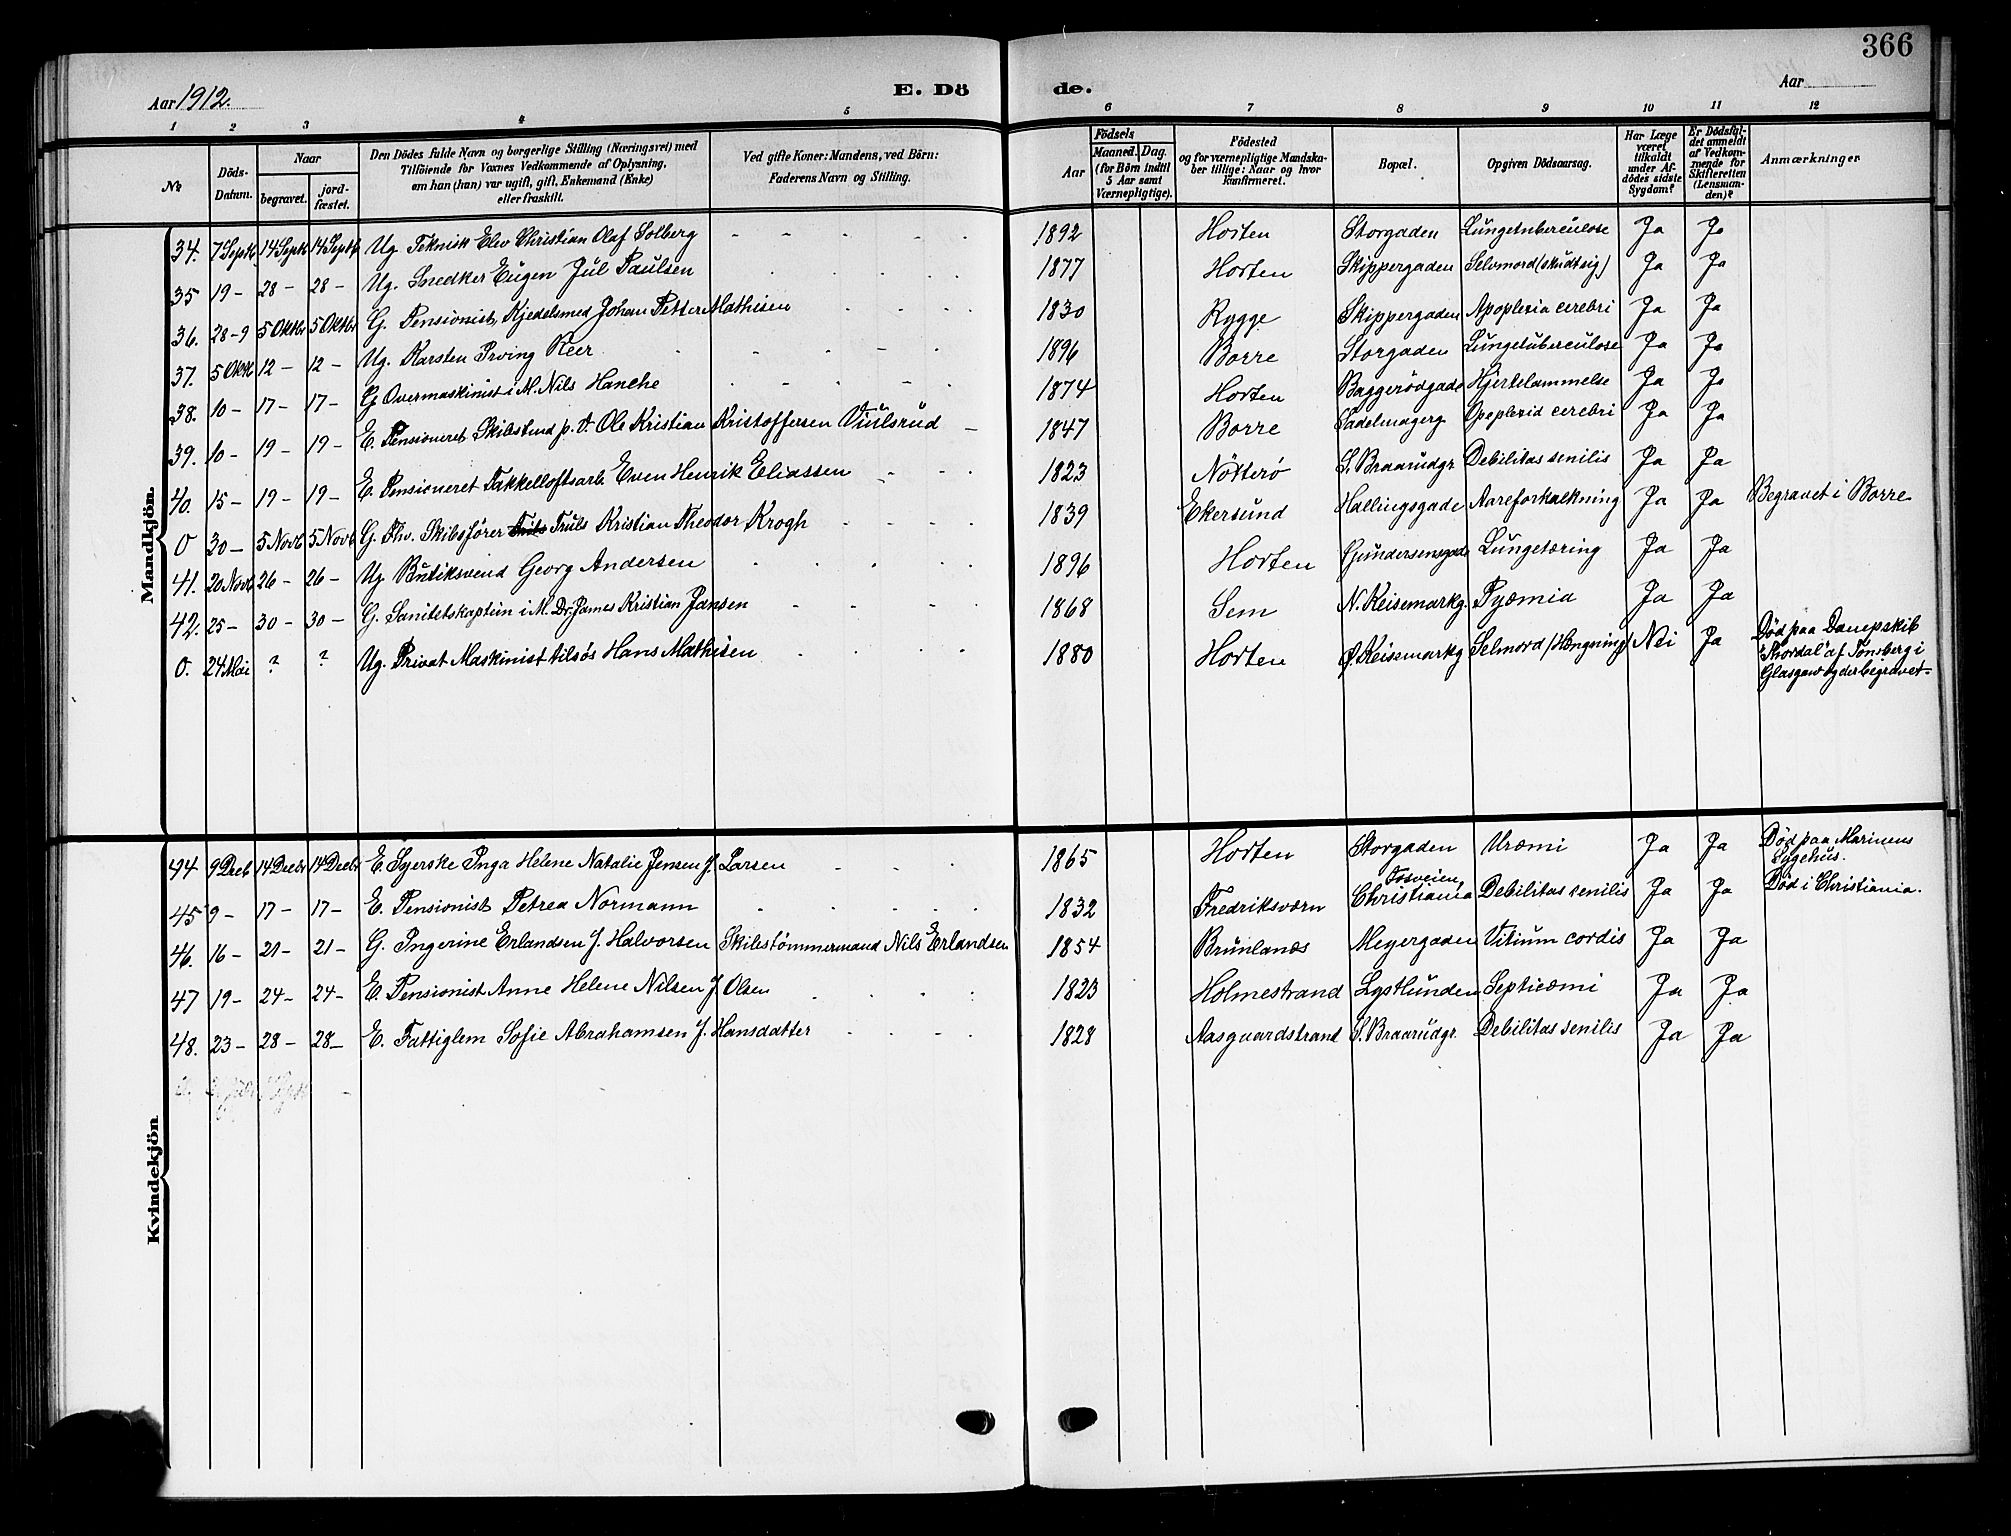 366
Aar 1912.
E. Dö de.
Aar
1 2 3 4 5 6 7 8 9 10 11 12
№
Döds-Datum.
Naar
begravet.
jord-fæstet.
Den Dödes fulde Navn og borgerlige Stilling (Næringsvei) med
Tilföiende for Voxnes Vedkommende af Oplysning,
om han (hun) var ugift, gift, Enkemand (Enke)
eller fraskilt.
Ved gifte Koner: Mandens, ved Börn:
Faderens Navn og Stilling.
Födsels
Aar
Maaned. Dag.
(for Börn indtil
5 Aar samt
Værnepligtige).
Födested
og for værnepligtige Mandska-
ber tillige: Naar og hvor
konfirmeret.
Bopæl.
Opgiven Dödsaarsag.
Har Læge
været
tilkaldt
under Af-
dödes sidste
Sygdom?
Er Dödsfal-
det anmeldt
af Vedkom-
mende for
Skifteretten
(Lensman-
den)?
Anmærkninger
Mandkjön.
34. 7 Septb. 14 Septb 14 Septb Ug. Teknisk Elev Christian Olaf Solberg - - - - - 1892 Horten Storgaden Lungetuberculose Ja Ja
35 19 - 28 - 28 - Ug. Snedker Eugen Jul Paulsen 1877 Horten Skippergaden Selvmord (skudt sig) Ja Ja
36. 28-9 5 Oktbr 5 Oktbr G. Pensionist, Kjedelsmed Johan Petter Mathisen 1830 Rygge Skippergaden Apoplexia cerebri Ja Ja
37. 5 Oktb 12 - 12 - Ug. Karsten Irving Reer 1896 Borre Storgaden Lungetuberculose Ja Ja
38. 10 - 17 - 17 - G. Overmaskinist i M. Nils Hanche 1874 Horten Baggerödgade Hjertelammelse Ja Ja
39. 10 - 19 - 19 - E. Pensioneret Skibstmd p.t. Ole Kristian Kristoffersen Viulsrud - 1847 Borre Sadelmagerg Apoplexia cerebri Ja Ja
40. 15 - 19 - 19 - E. Pensioneret Takkelloftsarb. Even Henrik Eliassen 1823 Nötterö S. Braarudgr Debilitas senilis Ja Ja
0 30 - 5 Novb 5 Novb G. Fhv. Skibsfører Truls Kristian Theodor Krogh 1839 Ekersund Hallingsgade Aareforkalkning Ja Ja Begravet i Borre
41. 20 Novb 26 - 26 - Ug. Butiksvend Georg Andersen 1896 Horten Gundersensgade Lungetæring Ja Ja
42. 25 - 30 - 30 - G. Sanitetskaptein i M. Dr. James Kristian Jansen 1868 Sem N. Keisemarkg. Pyæmia Ja Ja
0. 24 Mai ? ? Ug. Privat Maskinist tilsøs Hans Mathisen 1880 Horten Ø. Keisemarkg Selmord (Hængning) Nei Ja Død paa Dampskib
af Tönsberg i
Glasgow og der begravet -
Kvindekjön
44 9 Decb 14 Decbr 14 Decbr E. Syerske Inga Helene Natalie Jensen f. Larsen 1865 Horten Storgaden Uræmi Ja Ja Død paa Marinens
Sygehus.
45 9 - 17 - 17 - E. Pensionist Petrea Normann 1832 Fredriksværn Fosveien, Christiania Debilitas senilis Ja Ja Død i Christiania.
46. 16 - 21 - 21 - G. Ingerine Erlandsen f. Halvorsen Skibstömmermand Nils Erlandsen 1854 Brunlanæs Meyergaden Vitium cordis Ja Ja
47 19 - 24 - 24 - E. Pensionist Anne Helene Nilsen f. Olsen 1823 Holmestrand Lystlunden Septicæmi Ja Ja
48. 23 - 28 - 28 - E. Fattiglem Sofie Abrahamsen f. Hansdatter 1828 Aasgaardstrand S. Braarudgr. Debilitas senilis Ja Ja